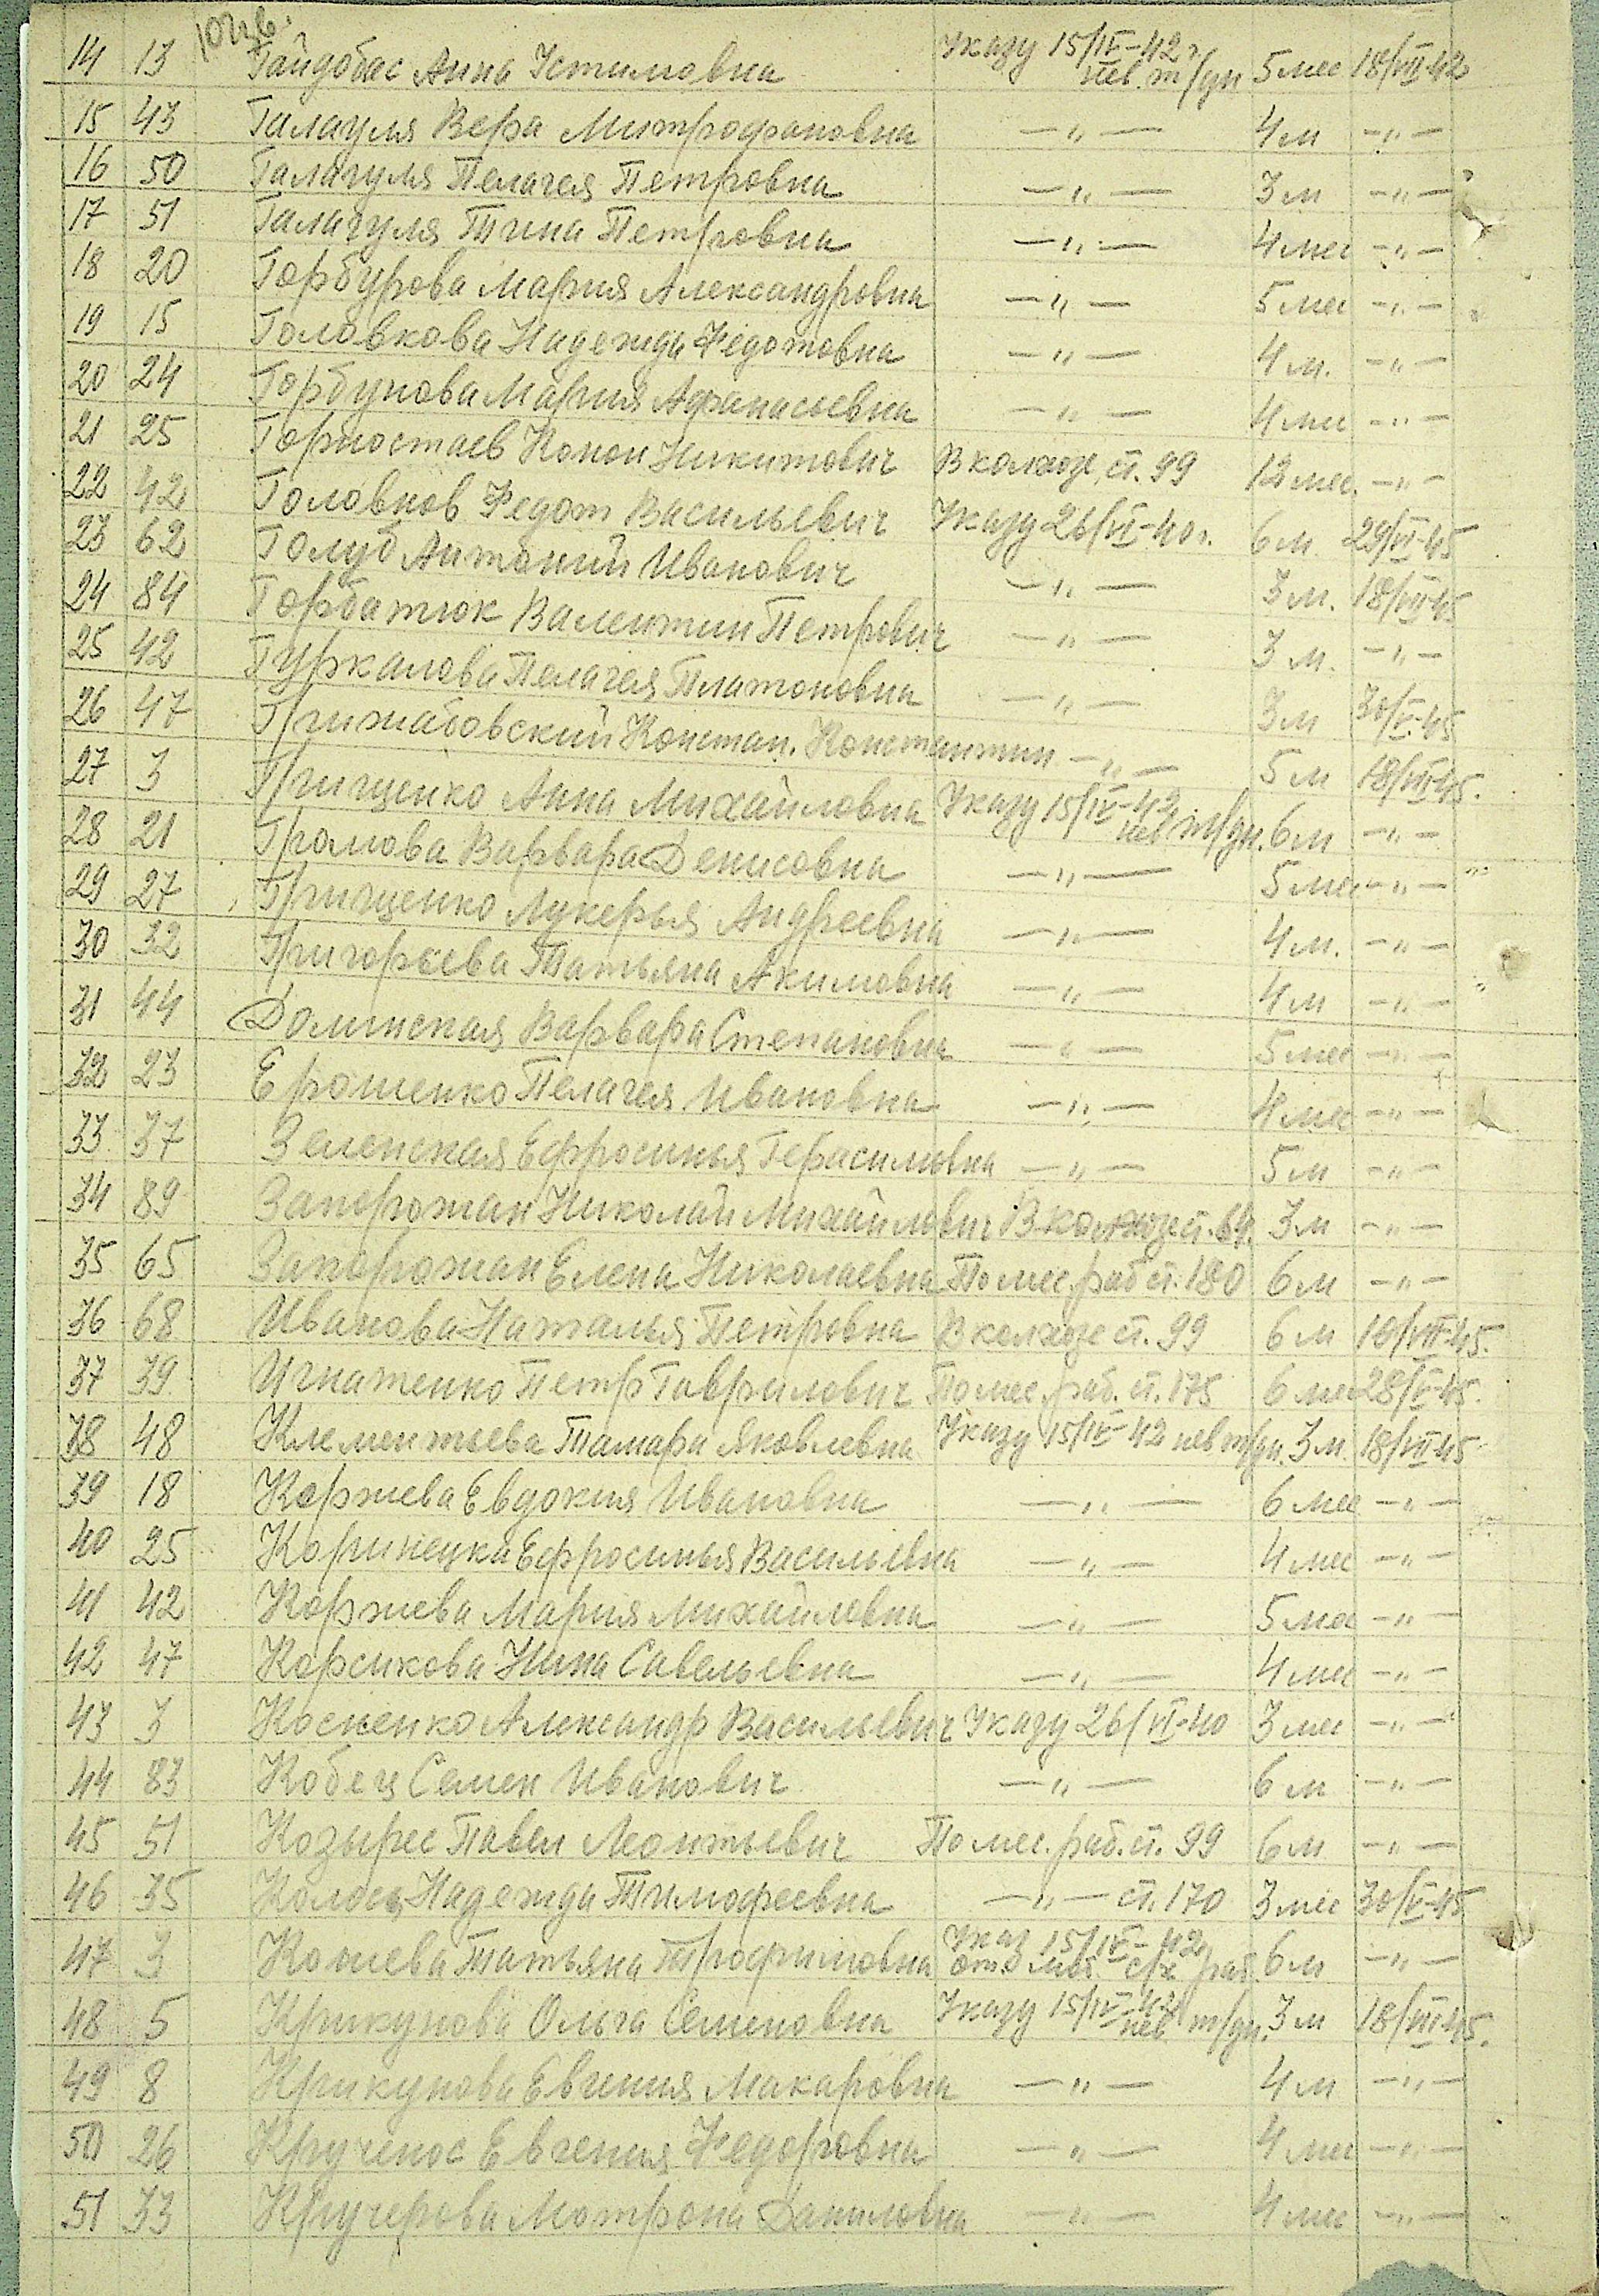 14 13 Гайдобас Анна Устимовна Указу 15/IV-42 г. нев. т/дн 5 мес 18/VII-42
15 43 Галагуля Вера Митрофановна —〃— 4 м —〃—
16 50 Галагуля Пелагея Петровна —〃— 3 м —〃—
17 51 Галагуля Тина Петровна —〃— 4 мес —〃—
18 20 Горбурова Мария Александровна —〃— 5 мес —〃—
19 15 Головкова Надежда Федотовна —〃— 4 м. —〃—
20 24 Горбунова Мария Афанасьевна —〃— 4 мес —〃—
21 25 Горностаев Конон Никитович В колхозе, ст. 99 12 мес. —〃—
22 42 Головков Федот Васильевич Указу 26/VI-40 г. 6 м. 29/VI-45
23 62 Голуб Антоний Иванович —〃— 3 м. 18/VII-45
24 84 Горбатюк Валентин Петрович —〃— 3 м. —〃—
25 42 Гуркалова Пелагея Платоновна —〃— 3 м 30/V-45
26 47 Гржабовский Констан. Константин —〃— 5 м 18/VII-45.
27 3 Грищенко Анна Михайловна Указу 15/IV-42 нев т/дн. 6 м —〃—
28 21 Громова Варвара Денисовна —〃— 5 мес —〃—
29 27 Грищенко Лукерья Андреевна —〃— 4 м. —〃—
30 32 Григорьева Татьяна Акимовна —〃— 4 м —〃—
31 44 Долинская Варвара Степановна —〃— 5 мес —〃—
32 23 Ерошенко Пелагея Ивановна —〃— 4 мес —〃—
33 37 Зеленская Ефросинья Герасимовна —〃— 5 м —〃—
34 89 Запорожан Николай Михайлович В колхозе ст. 64. 3 м —〃—
35 65 Запорожан Елена Николаевна По мес. раб ст. 180 6 м —〃—
36 68 Иванова Наталья Петровна В колхозе ст. 99 6 м 18/VII-45.
37 39 Игнатенко Петр Гаврилович По мес. раб. ст. 175 6 мес 28/V-45.
38 48 Клементьева Тамара Яковлевна Указу 15/IV-42 нев т/дн. 3 м. 18/VII-45
39 18 Коржева Евдокия Ивановна —〃— 6 мес —〃—
40 25 Коринецки Ефросинья Васильевна —〃— 4 мес —〃—
41 42 Коржева Мария Михайловна —〃— 5 мес —〃—
42 47 Корсикова Нина Савельевна —〃— 4 мес —〃—
43 3 Косненко Александр Васильевич Указу 26/VI-40 3 мес —〃—
44 83 Кобец Семен Иванович —〃— 6 м —〃—
45 51 Козырев Павел Леонтьевич По мес. раб. ст. 99 6 м —〃—
46 35 Колось Надежда Тимофеевна —〃— ст. 170 3 мес 30/V-45
47 3 Кошева Татьяна Трофимовна Указ 15/IV-42 от. моб. с/х раб. 6 м —〃—
48 5 Крикунова Ольга Семеновна Указу 15/IV-42 нев т/дн. 3 м 18/VII-45.
49 8 Крикунова Евгения Макаровна —〃— 4 м —〃—
50 26 Кручнос Евгения Федоровна —〃— 4 мес —〃—
51 33 Кручерова Мотрона Даниловна —〃— 4 мес —〃—